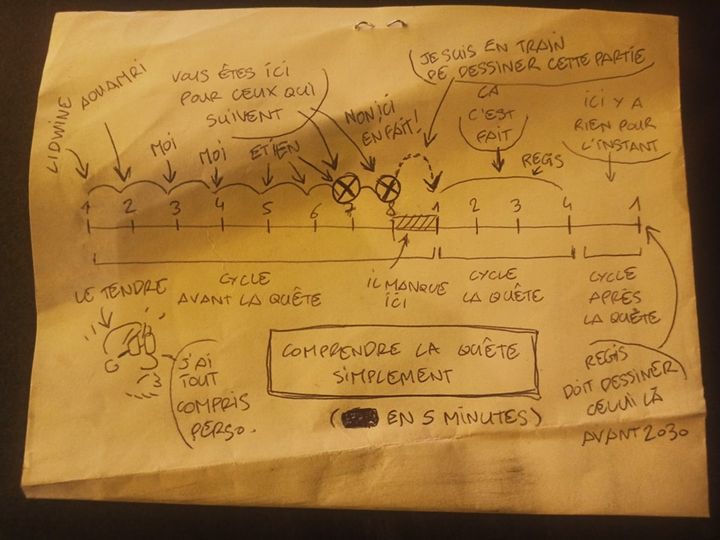 LIDWINE
AOUAMRI
MOI
MOI
ETIEN
VOUS ÊTES ICI
POUR CEUX QUI
SUIVENT
NON ICI
EN FAIT!
JE SUIS EN TRAIN
DE DESSINER CETTE PARTIE
ÇA
C'EST
FAIT
REGIS
ICI Y A
RIEN POUR
L'INSTANT
1 2 3 4 5 6 7 8 1 2 3 4 1
CYCLE
AVANT LA QUÊTE
IL MANQUE
ICI
CYCLE
LA QUÊTE
CYCLE
APRÈS
LA QUÊTE
LE TENDRE
J'AI
TOUT
COMPRIS
PERSO.
COMPRENDRE LA QUÊTE
SIMPLEMENT
( EN 5 MINUTES)
REGIS
DOIT DESSINER
CELUI LÀ
AVANT 2030